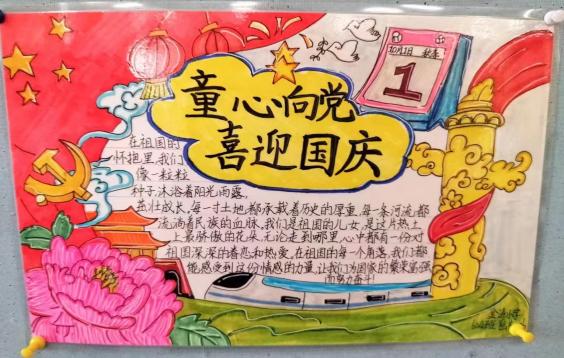 童心向党
喜迎国庆
10月1日
1
在祖国的
怀抱里,我们
像一粒粒
种子,沐浴着阳光雨露,
茁壮成长,每一寸土地,都承载着历史的厚重,每一条河流,都
流淌着民族的血脉,我们是祖国的儿女,是这片热土
上最骄傲的花朵,无论走到哪里,心中都有一份对
祖国深深的眷恋和热爱,在祖国的每一个角落,我们都
能感受到这份情感的力量,让我们为国家的繁荣富强
而努力奋斗!